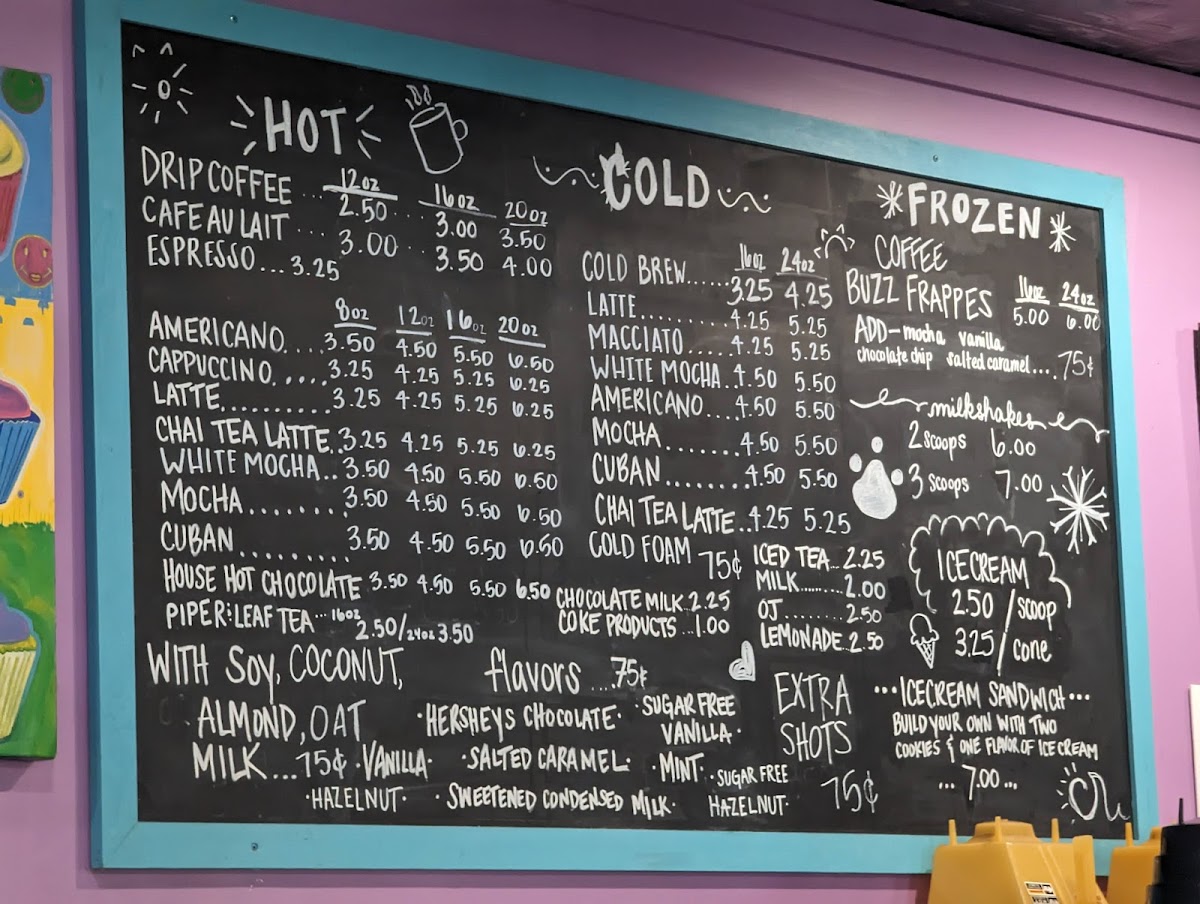 HOT
12oz 16oz 20oz
DRIP COFFEE ... 2.50 ... 3.00 3.50
CAFE AU LAIT .... 3.00 ... 3.50 4.00
ESPRESSO ... 3.25
8oz 12oz 16oz 20oz
AMERICANO.... 3.50 4.50 5.50 6.50
CAPPUCCINO..... 3.25 4.25 5.25 6.25
LATTE.......... 3.25 4.25 5.25 6.25
CHAI TEA LATTE.. 3.25 4.25 5.25 6.25
WHITE MOCHA.. 3.50 4.50 5.50 6.50
MOCHA........ 3.50 4.50 5.50 6.50
CUBAN......... 3.50 4.50 5.50 6.50
HOUSE HOT CHOCOLATE 3.50 4.50 5.50 6.50
PIPER & LEAF TEA ... 16oz 2.50/24oz 3.50
WITH SOY, COCONUT,
ALMOND, OAT
MILK...75¢
flavors ....75¢
·HERSHEYS CHOCOLATE· SUGAR FREE VANILLA·
·VANILLA· ·SALTED CARAMEL· ·MINT· ·SUGAR FREE HAZELNUT·
·HAZELNUT· ·SWEETENED CONDENSED MILK·
COLD
16oz 24oz
COLD BREW...... 3.25 4.25
LATTE.......... 4.25 5.25
MACCIATO...... 4.25 5.25
WHITE MOCHA.. 4.50 5.50
AMERICANO... 4.50 5.50
MOCHA ....... 4.50 5.50
CUBAN........ 4.50 5.50
CHAI TEA LATTE.. 4.25 5.25
COLD FOAM 75¢
CHOCOLATE MILK..2.25
COKE PRODUCTS ...1.00
ICED TEA... 2.25
MILK........ 2.00
OJ ........ 2.50
LEMONADE.. 2.50
EXTRA
SHOTS
75¢
FROZEN
COFFEE
BUZZ FRAPPES
16oz 24oz
5.00 6.00
ADD - mocha vanilla
chocolate chip salted caramel .... 75¢
milkshakes
2 scoops 6.00
3 scoops 7.00
ICECREAM
2.50 / scoop
3.25 / cone
...ICECREAM SANDWICH...
BUILD YOUR OWN WITH TWO
COOKIES & ONE FLAVOR OF ICE CREAM
... 7.00 ...